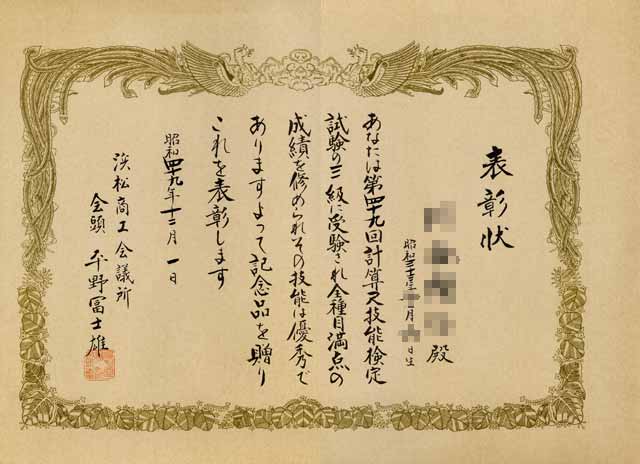 表彰状
殿
昭和三十三年 月 日生
あなたは第四十九回計算尺技能検定
試験の三級に受験され全種目満点の
成績を修められその技能は優秀で
ありますよって記念品を贈り
これを表彰します
昭和四十九年十二月一日
浜松商工会議所
会頭 平野冨士雄